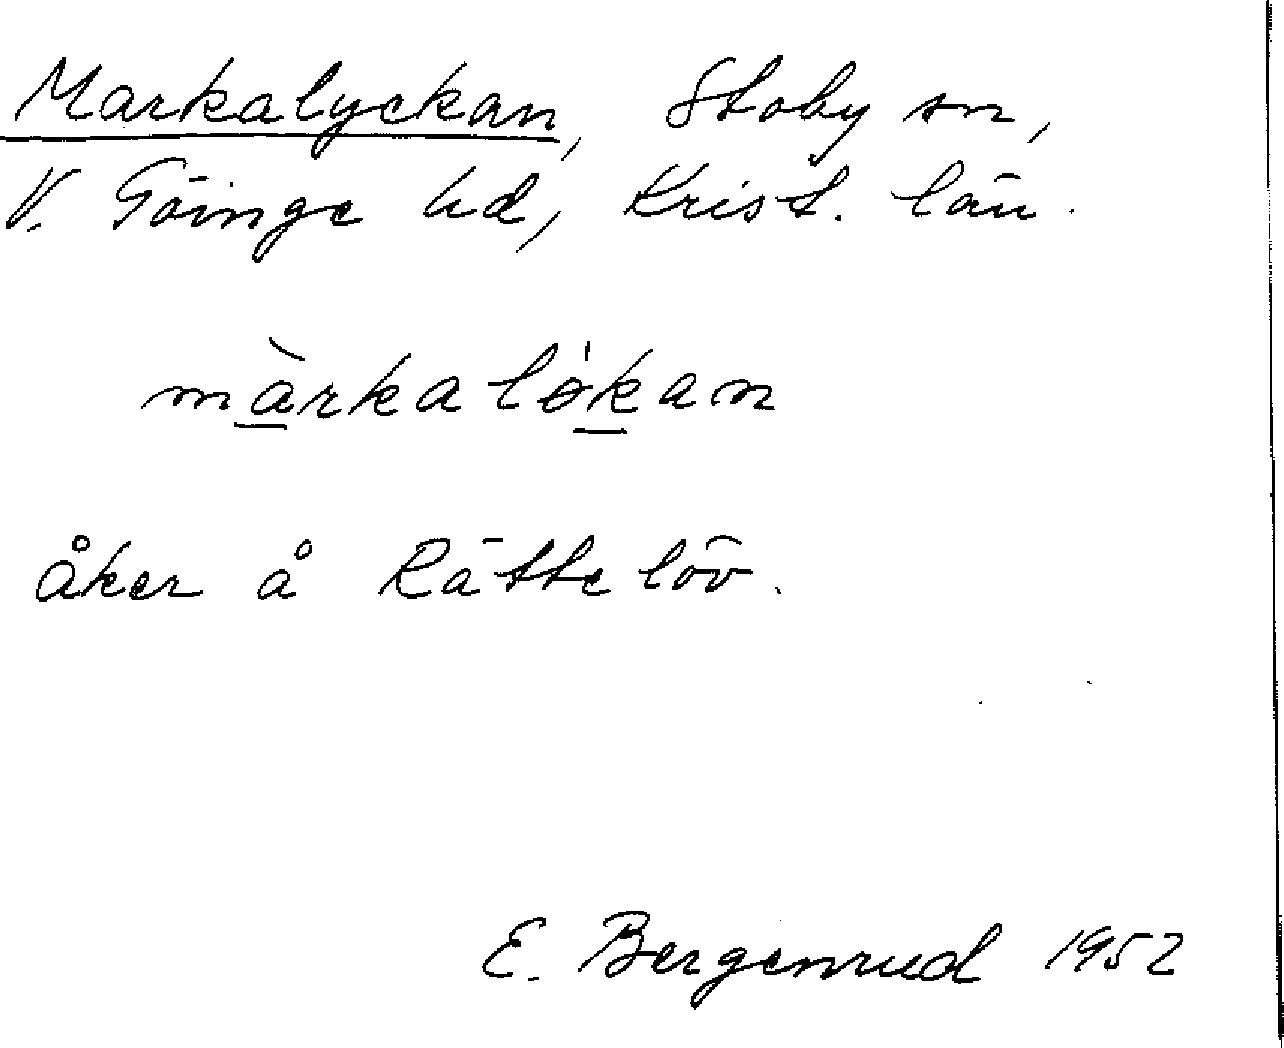 Markalyckan, Stoby sn,
V. Göinge hd, Krist. län.
màrkalökan
åker å Rättelöv.
E. Bergenrud 1952